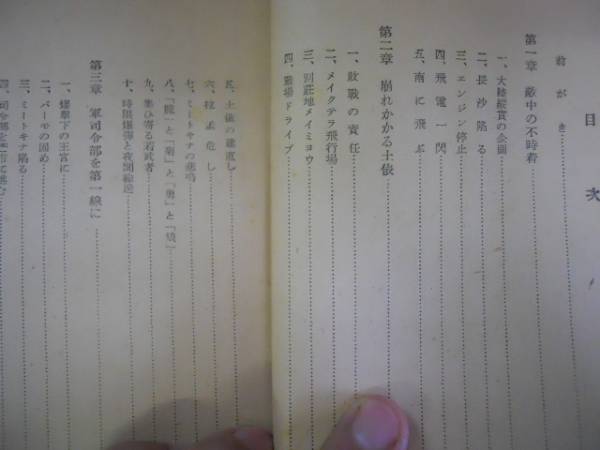 目次
前がき
第一章 敵中の不時着
一、大陸縦貫の企圖
二、長沙陥る
三、エンジン停止
四、飛電一閃
五、南に飛ぶ
第二章 崩れかかる土俵
一、敗戦の責任
二、メイクテラ飛行場
三、別荘地メイミョウ
四、戰場ドライブ
五、土俵の建直し
六、拉孟危し
七、ミートキナの悲鳴
八、「龍」と「菊」と「勇」と「烈」
九、集ひ寄る若武者
十、時限爆彈と夜間輸送
第三章 軍司令部を第一線に
一、爆撃下の王宮に
二、バーモの固め
三、ミートキナ陥る
四、司令部を